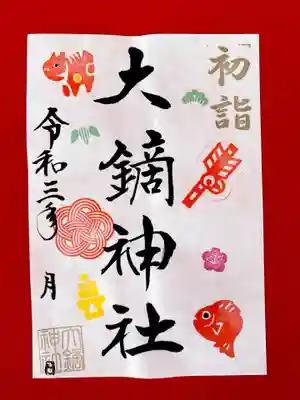 初詣
大鏑神社
令和三年
月
日
大鏑
神社